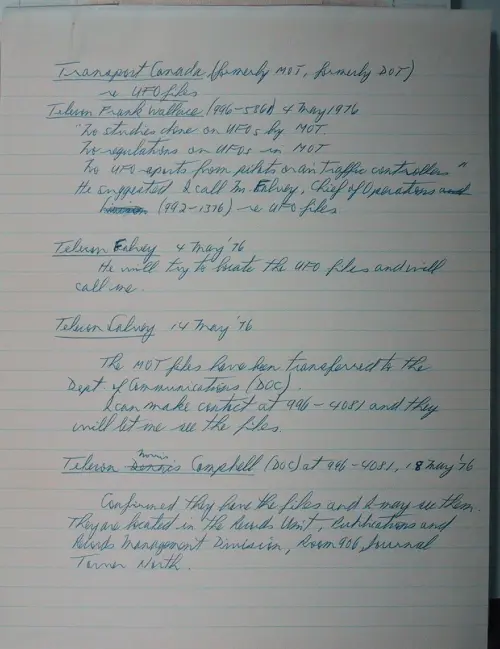 Transport Canada (formerly MOT, formerly DOT)
re UFO files
Telecon Frank Wallace (996-5361) 4 May 1976
"No studies done on UFOs by MOT.
No regulations on UFOs in MOT
No UFO reports from pilots or air traffic controllers"
He suggested I call Mr. Falvey, Chief of Operations and
(992-1376) re UFO files
Telecon Falvey 4 May '76
He will try to locate the UFO files and will
call me.
Telecon Falvey 14 May '76
The MOT files have been transferred to the
Dept. of Communications (DOC).
I can make contact at 996-4081 and they
will let me see the files.
Telecon Dennis Norris Campbell (DOC) at 996-4081, 18 May '76
Confirmed they have the files and I may see them.
They are located in the Records Unit, Publications and
Records Management Division, Room 906, Journal
Tower North.